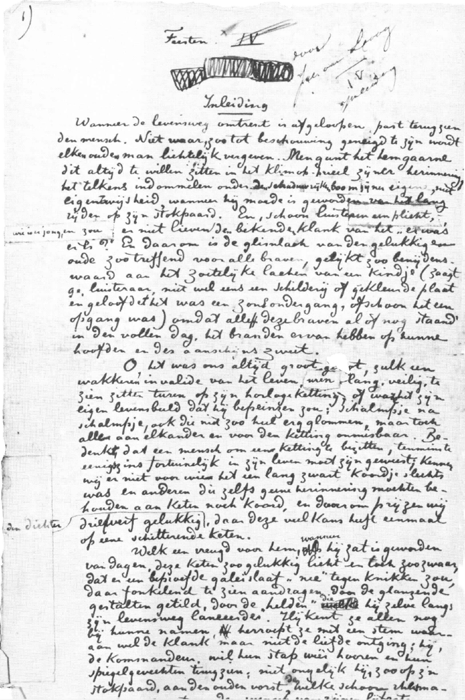 1)
Feesten. IV
door
IV
Inleiding
Wanneer de levensweg omtrent is afgeloopen, past terugzien
den mensch. Niet waar, zoo tot beschouwing geneigd te zijn wordt
elken ouden man lichtelijk vergeven. Men gunt het hem gaarne
dit altijd te willen zitten in het klimop-prieel zijner herinnering,
het telkens indommelen onder de schaduwrijke boom zijner eigen
eigenwijsheid, wanneer hij moede is geworden van het lang
rijden op zijn stokpaard. En, schoon luisteren een plicht,
wie is jong, en zou er niet lieven den bekenden klank van het "er was
er is"? En daarom is de glimlach van den gelukkigen
oude zoo treffend voor alle braven, gelijkt zoo benijdens-
waard aan het zoetelijke lachen van een kindje (zaagt
ge, luisteraar, niet wel eens een schilderij of gekleurde plaat
en geloofdet het was een zonsondergang, ofschoon het een
opgang was) omdat alle deze braven al of nog staand
in den vollen dag, het branden ervan hebben op hunne
hoofden en des aanschijns zweet.
O, hit was ons altijd groot genot, zulk een
wakkeren invalide van het leven, lang, veilig, te
zien zitten turen op zijn horlogeketting, of was het zijn
eigen levensbuld dat hij bepeinzen zou; schalmpje na
schalmpje, ook die niet zoo heel erg glommen, maar toch
alles aan elkander en voor den ketting onmisbaar. Be-
denkt, dat een mensch om een ketting te bezitten, tenminste
eenigszins fortuinelijk in zijn leven moet zijn geweest, kennen
wij er niet voor wien het een lang zwart koordje slechts
was en anderen die zelfs geene herinnering mochten be-
houden aan keten noch koord, en daarom prijzen wij
den dichter driewerf gelukkig, daar deze veel kans heeft eenmaal
op eene schitterende keten.
Welk een vreugd voor hem, wanneer hij zat is geworden
van dagen, deze keten zoo gelukkig licht en toch zoo zwaar,
dat er een beproefde galeislaaf "nee" tegen knikken zou,
daar fonkelend te zien aandragen, door de glanzende
gestalten getild, door de "helden" die hij zelve langs
zijn levensweg lanceerde. Hij kent ze allen nog
bij hunne namen, hervroept ze met een stem waar-
aan wel de klank maar niet de liefde ontging; hij,
de kommandeur, wil hun stap weer hooren en hun
spiegelgevechten terugzien; niet ongelijk hij, zoo op zijn
stokpaard, aan den ouden vorst, welke schoone